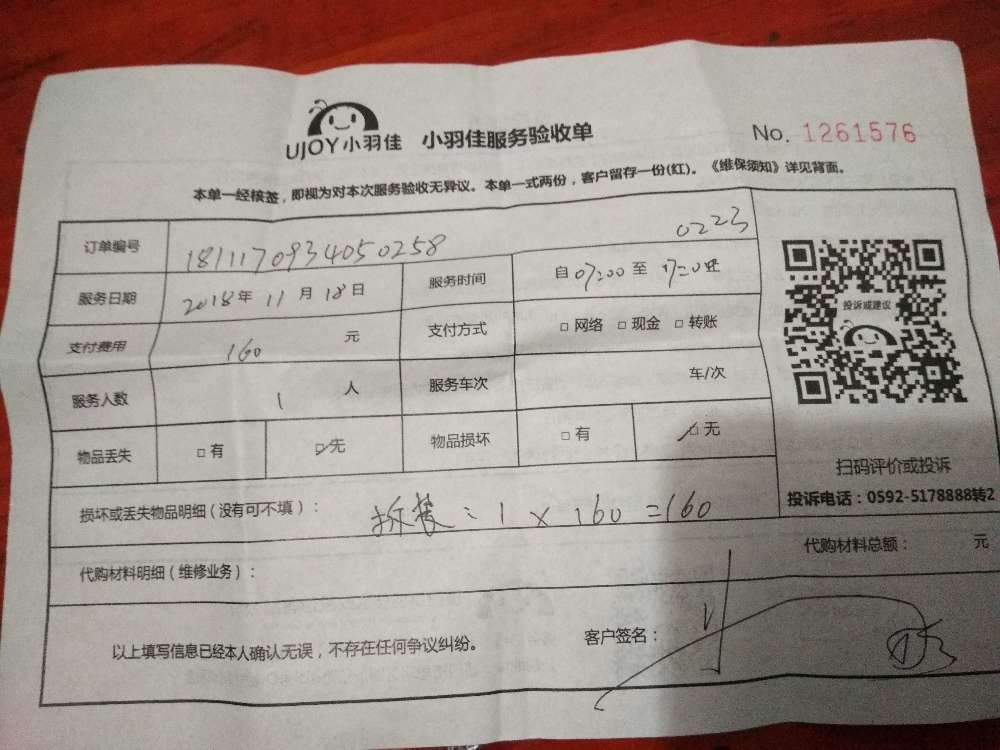 UJOY小羽佳 小羽佳服务验收单 No. 1261576
本单一经核签，即视为对本次服务验收无异议。本单一式两份，客户留存一份(红)。《维保须知》详见背面。
订单编号 1811170934050258 0223
服务日期 2018年11月18日 服务时间 自07:00至17:00
支付费用 160 元 支付方式 □网络 □现金 □转账
服务人数 1 人 服务车次 车/次
物品丢失 □有 □无 物品损坏 □有 □无
投诉或建议
扫码评价或投诉
投诉电话：0592-5178888转2
损坏或丢失物品明细（没有可不填）： 拆装：1×160=160
代购材料明细（维修业务）： 代购材料总额： 元
以上填写信息已经本人确认无误，不存在任何争议纠纷。 客户签名：